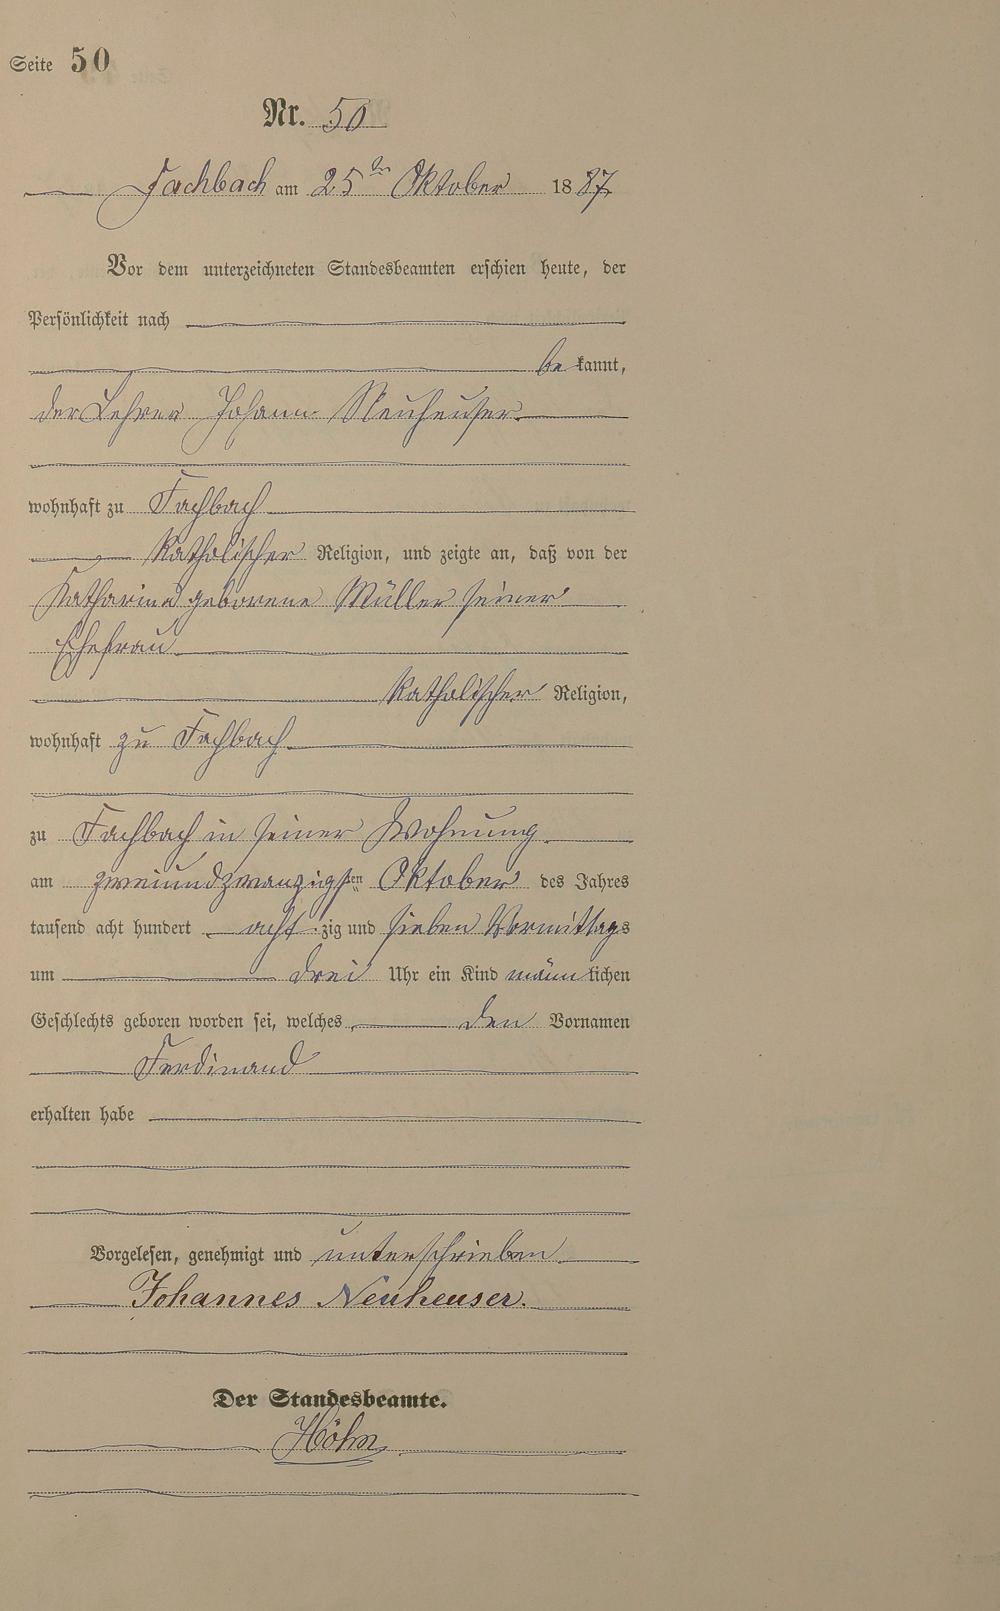 Seite 50
Nr. 50
Fachbach am 25ten Oktober 1887
Vor dem unterzeichneten Standesbeamten erschien heute, der
Persönlichkeit nach
bekannt,
der Lehrer Johann Neuheuser
wohnhaft zu Fachbach
katholischer Religion, und zeigte an, daß von der
Katharina geborene Müller seiner
Ehefrau
katholischer Religion,
wohnhaft zu Fachbach
zu Fachbach in seiner Wohnung
am zweiundzwanzigsten Oktober des Jahres
tausend acht hundert acht zig und sieben Vormittags
um drei Uhr ein Kind männlichen
Geschlechts geboren worden sei, welches den Vornamen
Ferdinand
erhalten habe
Vorgelesen, genehmigt und unterschrieben
Johannes Neuheuser.
Der Standesbeamte.
Höhn